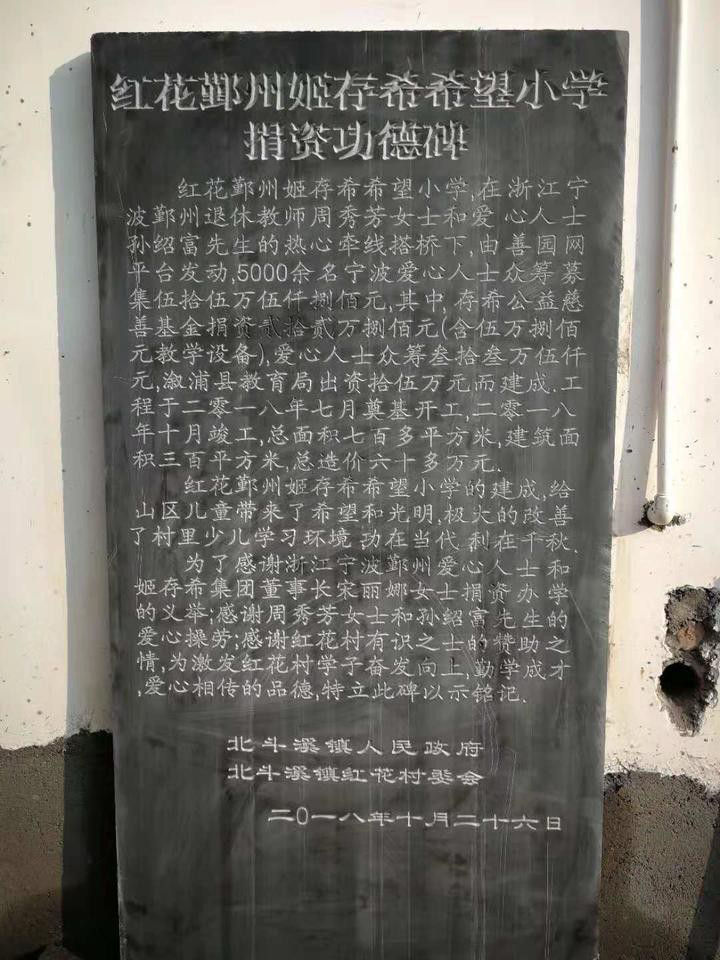 红花鄞州姬存希希望小学
捐资功德碑
红花鄞州姬存希希望小学,在浙江宁
波鄞州退休教师周秀芳女士和爱心人士
孙绍富先生的热心牵线搭桥下,由善园网
平台发动,5000余名宁波爱心人士众筹募
集伍拾伍万伍仟捌佰元,其中,存希公益慈
善基金捐资贰拾贰万捌佰元(含伍万捌佰
元教学设备),爱心人士众筹叁拾叁万伍仟
元,溆浦县教育局出资拾伍万元而建成.工
程于二零一八年七月奠基开工,二零一八
年十月竣工,总面积七百多平方米,建筑面
积三百平方米,总造价六十多万元.
红花鄞州姬存希希望小学的建成,给
山区儿童带来了希望和光明,极大的改善
了村里少儿学习环境,功在当代,利在千秋.
为了感谢浙江宁波鄞州爱心人士和
姬存希集团董事长宋丽娜女士捐资办学
的义举;感谢周秀芳女士和孙绍富先生的
爱心操劳;感谢红花村有识之士的赞助之
情,为激发红花村学子奋发向上,勤学成才
,爱心相传的品德,特立此碑以示铭记.
北斗溪镇人民政府
北斗溪镇红花村委会
二0一八年十月二十六日